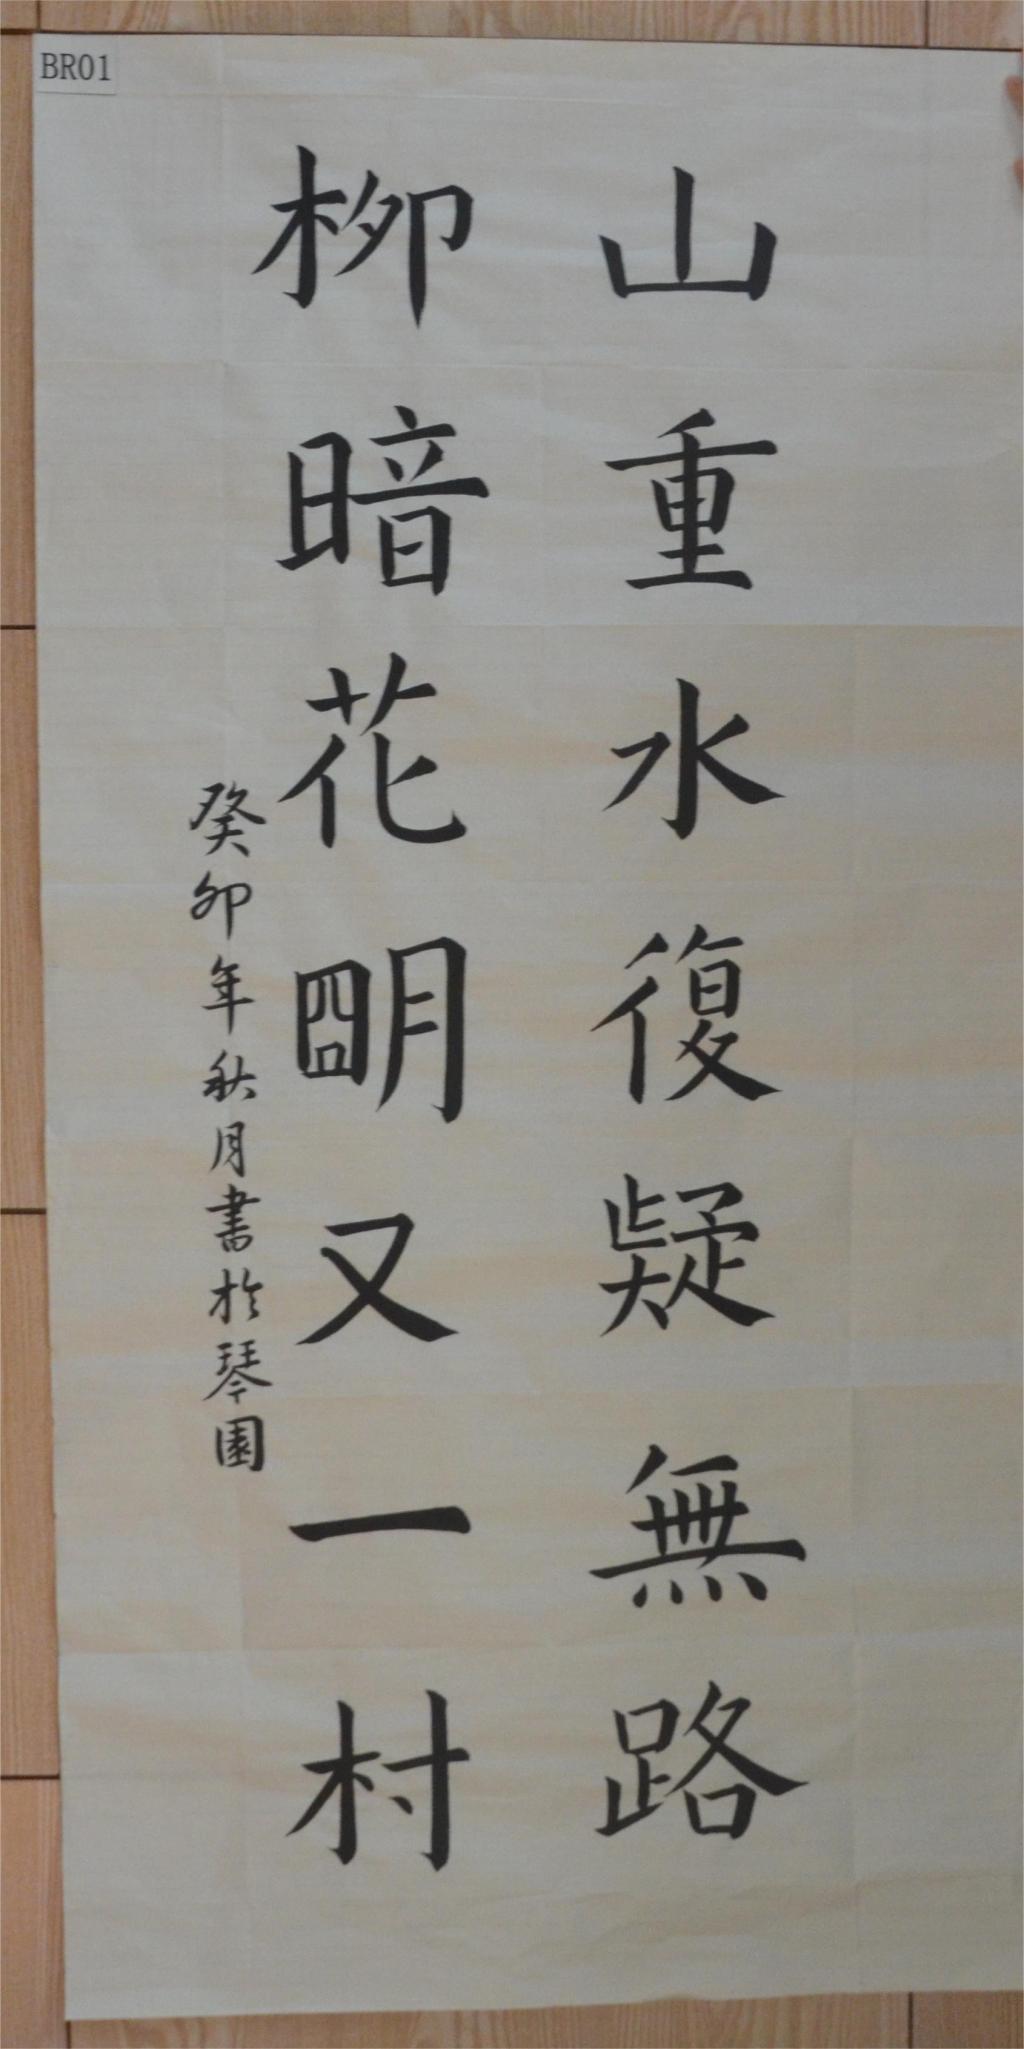 BR01
山重水復疑無路
柳暗花朙又一村
癸卯年秋月書於琴園